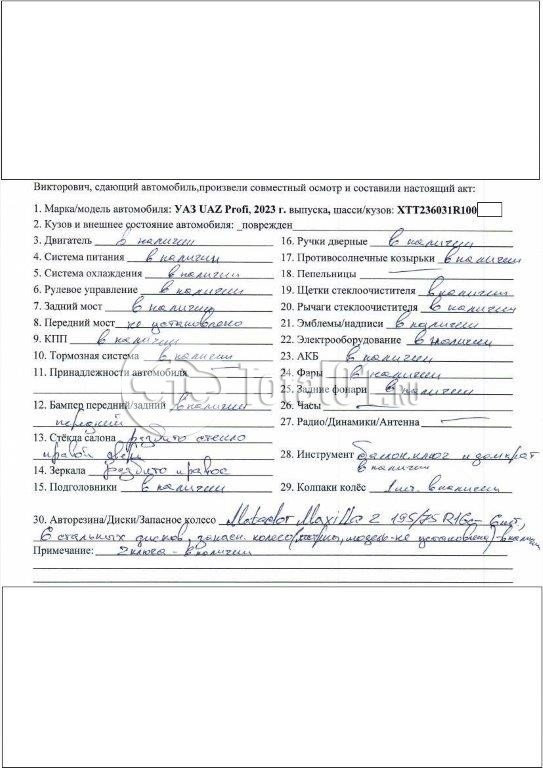 Викторович, сдающий автомобиль,произвели совместный осмотр и составили настоящий акт:
1. Марка/модель автомобиля: УАЗ UAZ Profi, 2023 г. выпуска, шасси/кузов: XTT236031R100
2. Кузов и внешнее состояние автомобиля: _поврежден
3. Двигатель в наличии
4. Система питания в наличии
5. Система охлаждения в наличии
6. Рулевое управление в наличии
7. Задний мост в наличии
8. Передний мост не установлено
9. КПП в наличии
10. Тормозная система в наличии
11. Принадлежности автомобиля
12. Бампер передний/задний в наличии
передний
13. Стёкла салона разбито стекло
правой двери
14. Зеркала разбито правое
15. Подголовники в наличии
16. Ручки дверные в наличии
17. Противосолнечные козырьки в наличии
18. Пепельницы —
19. Щетки стеклоочистителя в наличии
20. Рычаги стеклоочистителя в наличии
21. Эмблемы/надписи в наличии
22. Электрооборудование в наличии
23. АКБ в наличии
24. Фары в наличии
25. Задние фонари в наличии
26. Часы —
27. Радио/Динамики/Антенна —
28. Инструмент балон.ключ и домкрат
в наличии
29. Колпаки колёс 1 шт. в наличии
30. Авторезина/Диски/Запасное колесо Matador Maxilla 2 195/75 R16c – 6 шт,
6 стальных дисков, запасн. колесо (марка, модель - не установлена) - в налич
Примечание: 2 ключа - в наличии
Total01.ru